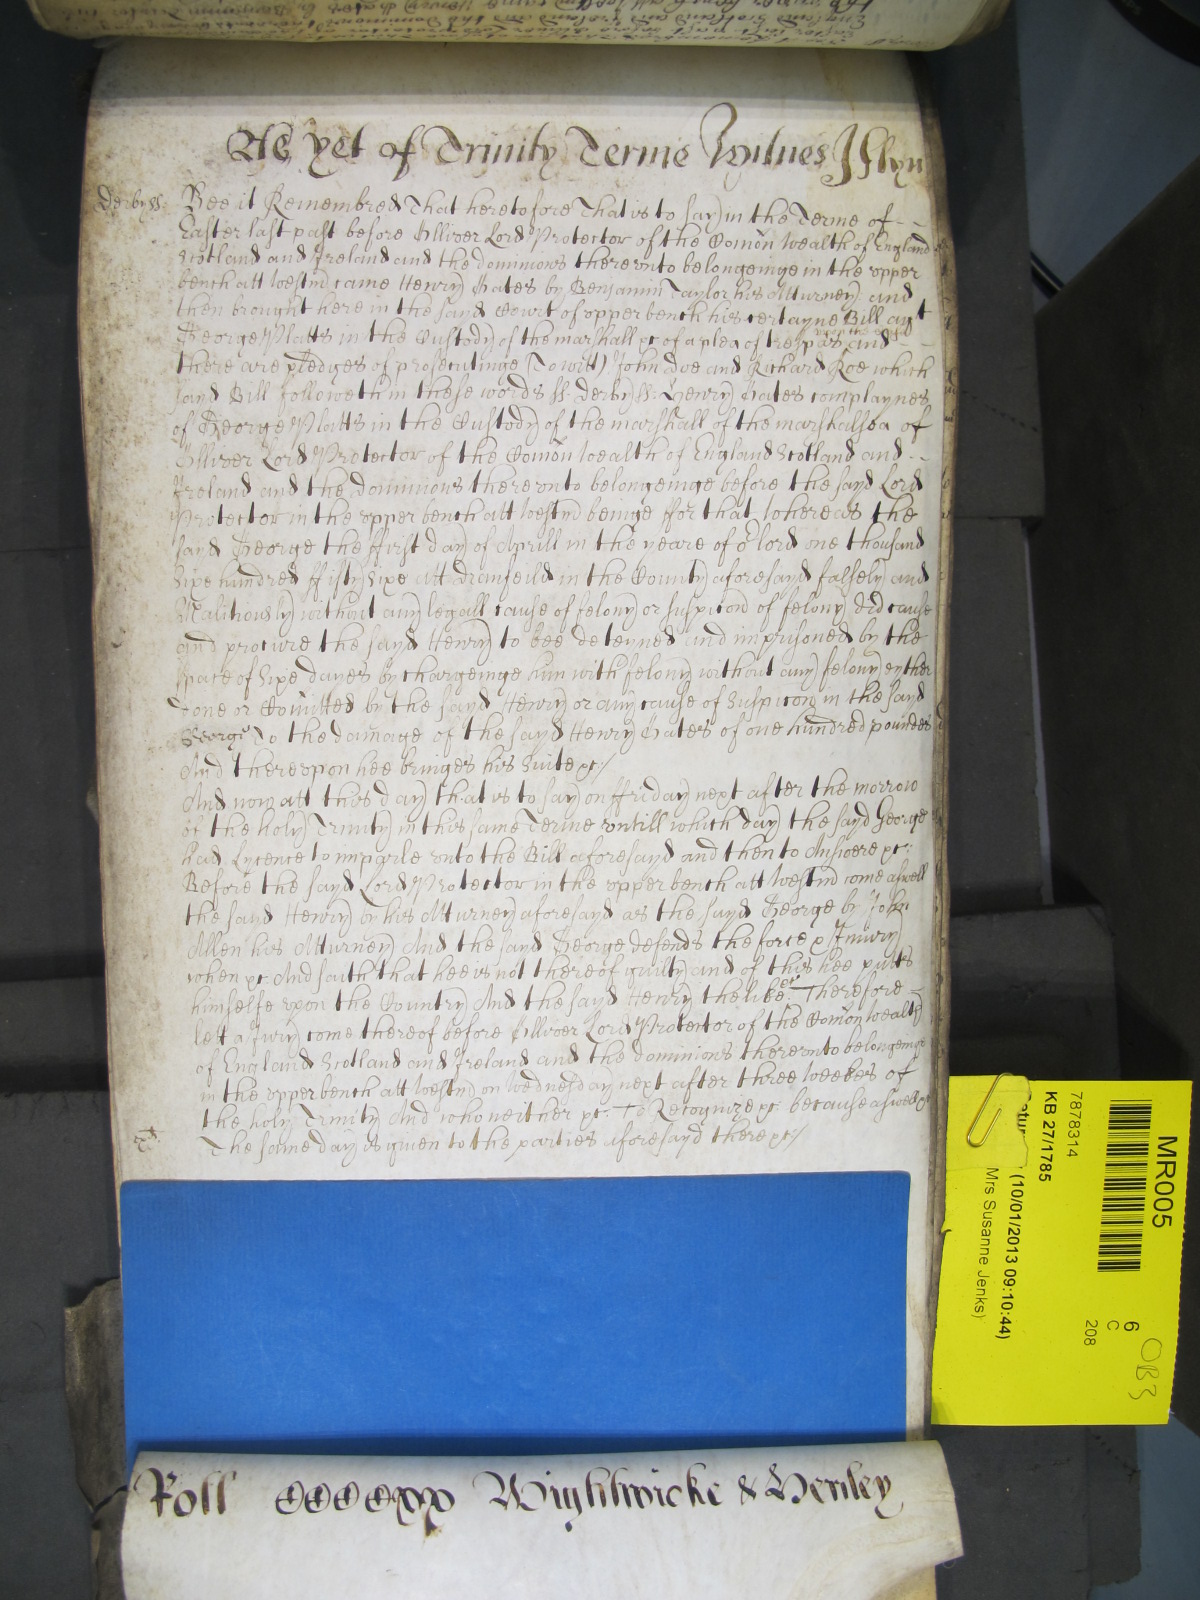 As yet of Trinity Terme Witnes J Glyn
Derby ss. Bee it Remembred That heretofore That is to say in the Terme of
Easter last past before Olliver Lord Protector of the Com̄on wealth of England
Scotland and Ireland and the dominions therevnto belongeinge in the vpper
bench att Westm̄ came Henry Bates by Benjamin Taylor his Atturney and
then brought here in the sayd Court of vpper bench his certayne Bill agt
George Platts in the Custody of the marshall &c of a plea of trespas and
there are pledges of prosecutinge (To witt) John Doe and Richard Roe which
sayd Bill followeth in these words ss. Derby ss. Henry Bates complaynes
of George Platts in the Custody of the marshall of the marshalsea of
Olliver Lord Protector of the Com̄on wealth of England Scotland and
Ireland and the dominions therevnto belongeinge before the sayd Lord
Protector in the vpper bench att Westm̄ beinge ffor that whereas the
sayd George the ffirst day of Aprill in the yeare of or lord one thousand
Sixe hundred ffifty Sixe att Dranfeild in the County aforesayd falsely and
Malitiously without any legall cause of felony or suspicion of felony did cause
and procure the sayd Henry to bee deteyned and imprisoned by the
space of Sixe dayes by chargeinge him with felony without any felony eyther
done or Com̄itted by the sayd Henry or any cause of Suspicon in the sayd
George To the damage of the sayd Henry Bates of one hundred poundes
And therevpon hee bringes his Suite &c /
And now att this day that is to say on ffriday next after the morrow
of the holy Trinity in this same Terme vntill which day the sayd George
had Lycence to imparle vnto the Bill aforesayd and then to Answere &c:
Before the sayd Lord Protector in the vpper bench att Westm̄ come aswell
the sayd Henry by his Atturney aforesayd as the sayd George by John
Allen his Atturney And the sayd George defends the force & Iniury
when &c And saith that hee is not thereof guilty and of this hee putts
himselfe vpon the Country And the sayd Henry the like &c Therefore
lett a Jury come thereof before Olliver Lord Protector of the Com̄on wealth
of England Scotland and Ireland and the dominions therevnto belongeinge
in the vpper bench att Westm̄ on Wednesday next after three weekes of
the holy Trinity And who neither &c. To Recognize &c because aswell &c
The same day is given to the parties aforesayd there &c /
Roll CCCCxx Wightwicke & Henley
MR005
6
C
208
OB3
7878314
KB 27/1785
(10/01/2013 09:10:44)
Mrs Susanne Jenks)